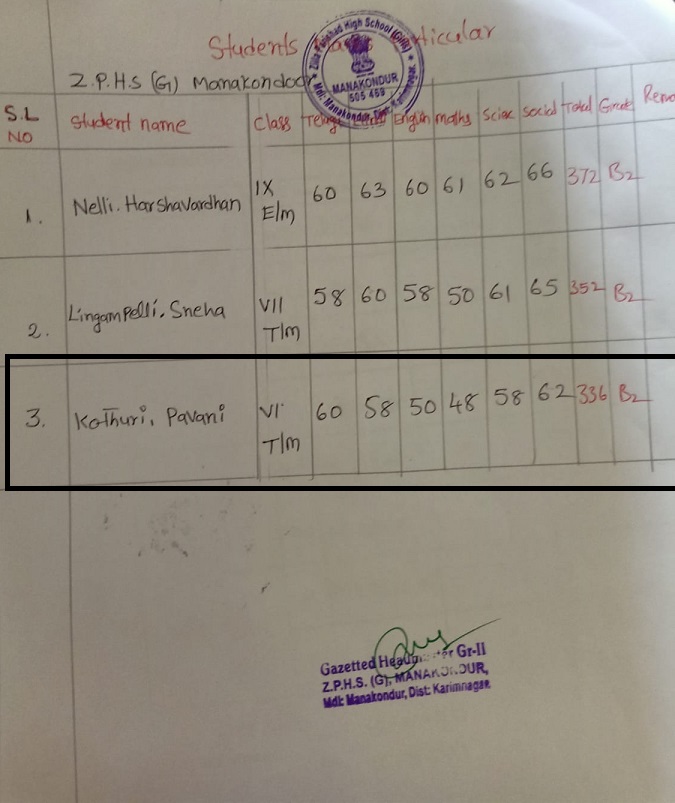 Students Marks Particular
Z.P.H.S (G) Manakondoor
Zilla Parishad High School (Girls)
MANAKONDUR
505 469
Mdl: Manakondur, Dist: Karimnagar
S.L NO Student name Class Telugu English maths Science Social Total Grade
1. Nelli. Harshavardhan IX E/m 60 63 60 61 62 66 372 B2
2. Lingampelli. Sneha VII T/m 58 60 58 50 61 65 352 B2
3. Kothuri. Pavani VI T/m 60 58 50 48 58 62 336 B2
Gazetted Headmaster Gr-II
Z.P.H.S. (G), MANAKONDUR,
Mdl: Manakondur, Dist: Karimnagar